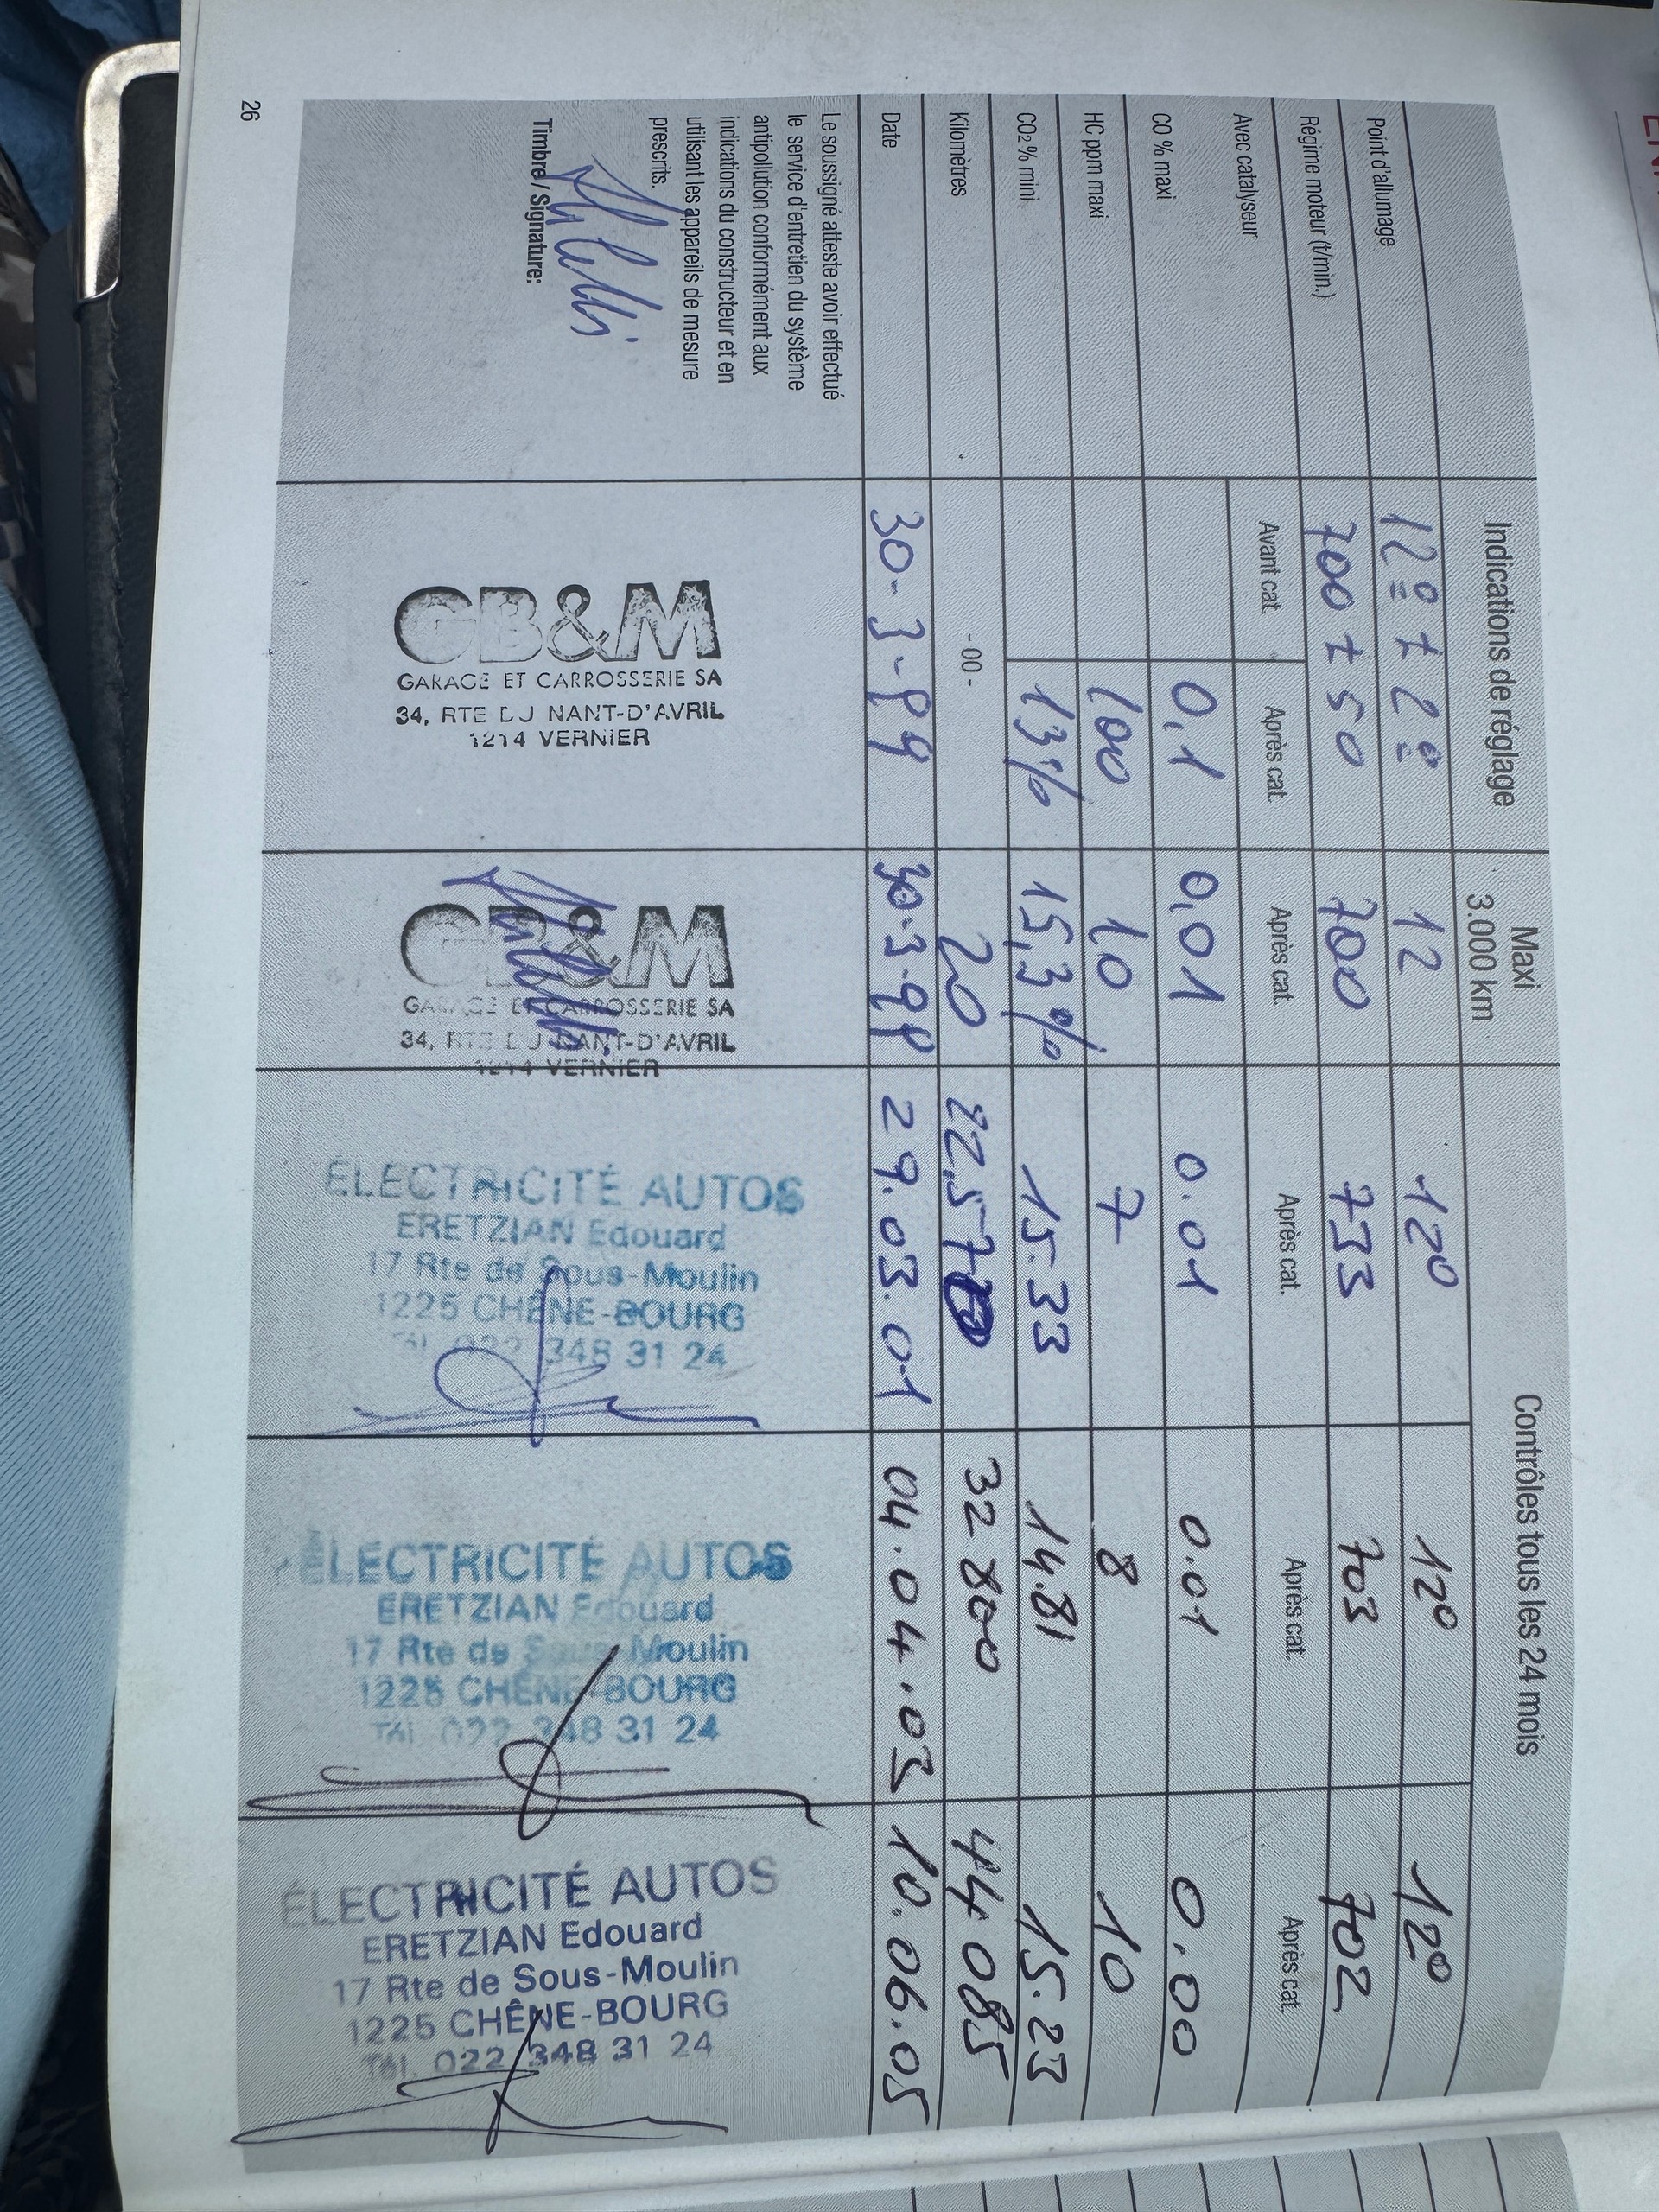 Indications de réglage
Maxi
3.000 km
Contrôles tous les 24 mois
Point d'allumage 12° ± 2° 12 12° 12° 12°
Régime moteur (t/min.) 700 ± 50 700 733 703 702
Avec catalyseur Avant cat. Après cat. Après cat. Après cat. Après cat. Après cat.
CO % maxi 0,1 0,01 0.01 0.01 0.00
HC ppm maxi 100 10 7 8 10
CO₂ % mini 13% 15,3% 15.33 14.81 15.23
Kilomètres - 00 - 20 32 800 44 085
Date 30-3-99 30-3-99 29.03.01 04.04.03 10.06.05
Le soussigné atteste avoir effectué
le service d'entretien du système
antipollution conformément aux
indications du constructeur et en
utilisant les appareils de mesure
prescrits.
Timbre / Signature:
GB&M
GARAGE ET CARROSSERIE SA
34, RTE DU NANT-D'AVRIL
1214 VERNIER
GB&M
GARAGE ET CARROSSERIE SA
34, RTE DU NANT-D'AVRIL
1214 VERNIER
ÉLECTRICITÉ AUTOS
ERETZIAN Edouard
17 Rte de Sous-Moulin
1225 CHÊNE-BOURG
Tél. 022 348 31 24
ÉLECTRICITÉ AUTOS
ERETZIAN Edouard
17 Rte de Sous-Moulin
1225 CHÊNE-BOURG
Tél. 022 348 31 24
ÉLECTRICITÉ AUTOS
ERETZIAN Edouard
17 Rte de Sous-Moulin
1225 CHÊNE-BOURG
Tél. 022 348 31 24
26